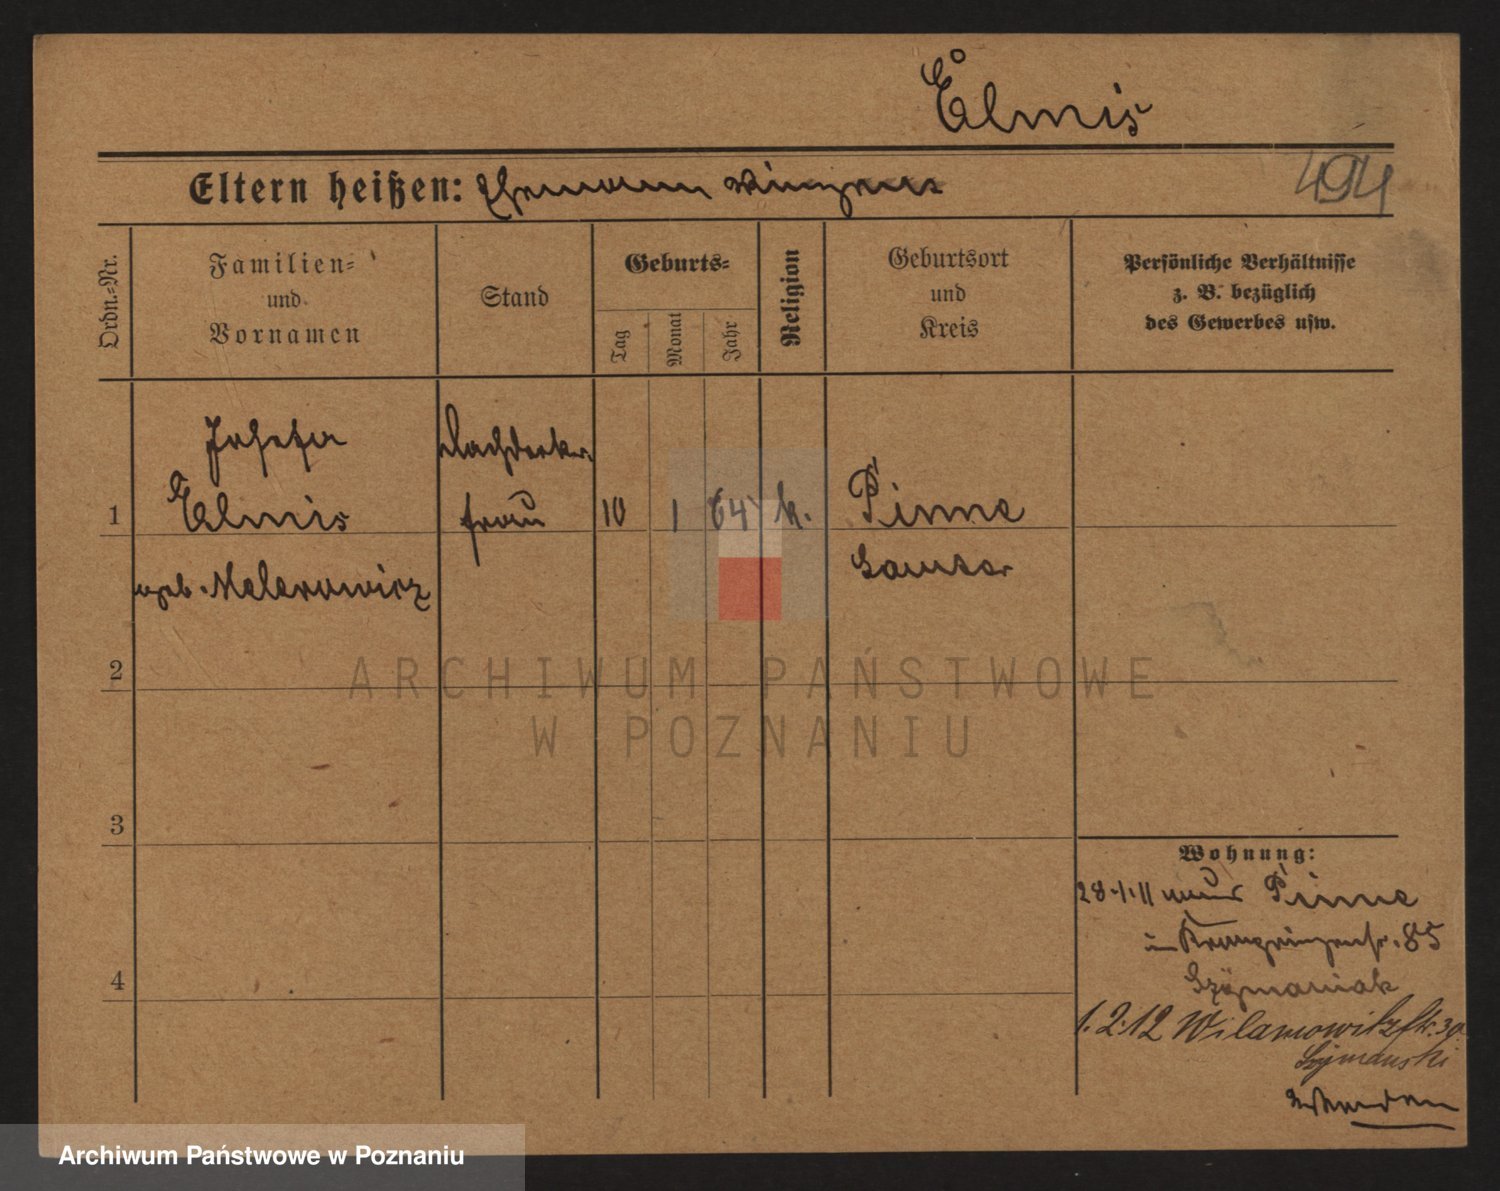 Elmis
Eltern heißen: Ehemann Vinzent
494
Ordn.=Nr.
Familien=
und
Vornamen
Stand
Geburts=
Tag
Monat
Jahr
Religion
Geburtsort
und
Kreis
Persönliche Verhältnisse
z. B. bezüglich
des Gewerbes usw.
Josefa
Elmis
geb.
Dachdecker
frau
1
10
1
64
k.
Pinne
Samter
2
3
4
Wohnung:
28.1.11 Pinne
in Kronprinzenstr. 85
Szymaniak
1.2.12 Wilamowitzstr. 30
Szymanski
ARCHIWUM PAŃSTWOWE
W POZNANIU
Archiwum Państwowe w Poznaniu